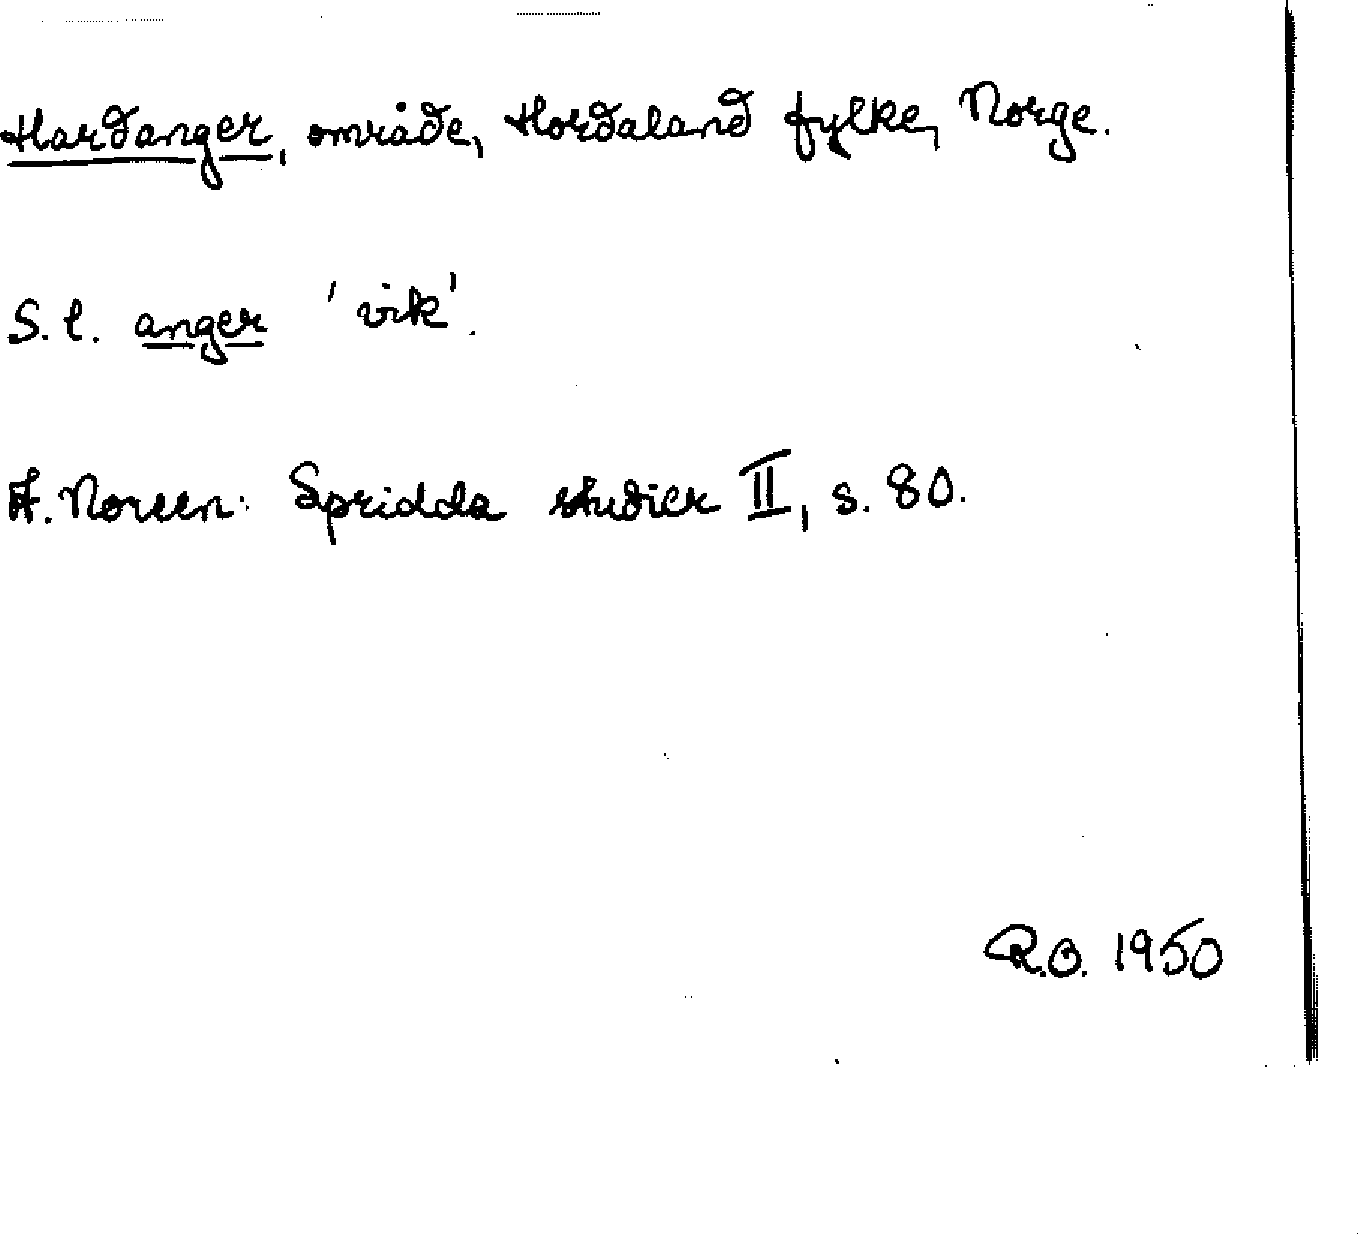 Hardanger, område, Hordaland fylke, Norge.
S.l. anger 'vik'.
A. Noreen: Spridda studier II, s. 80.
R.O. 1950